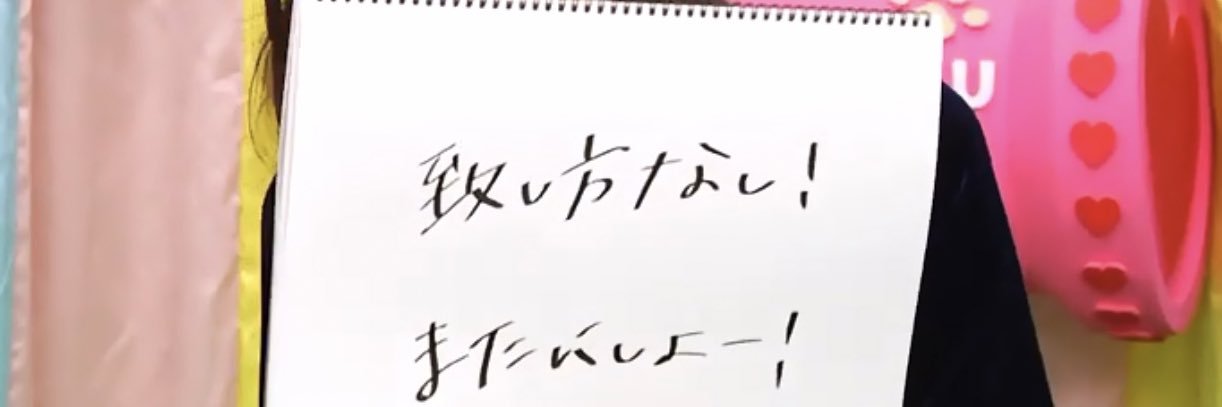 U
致し方なし!
またにしよー!